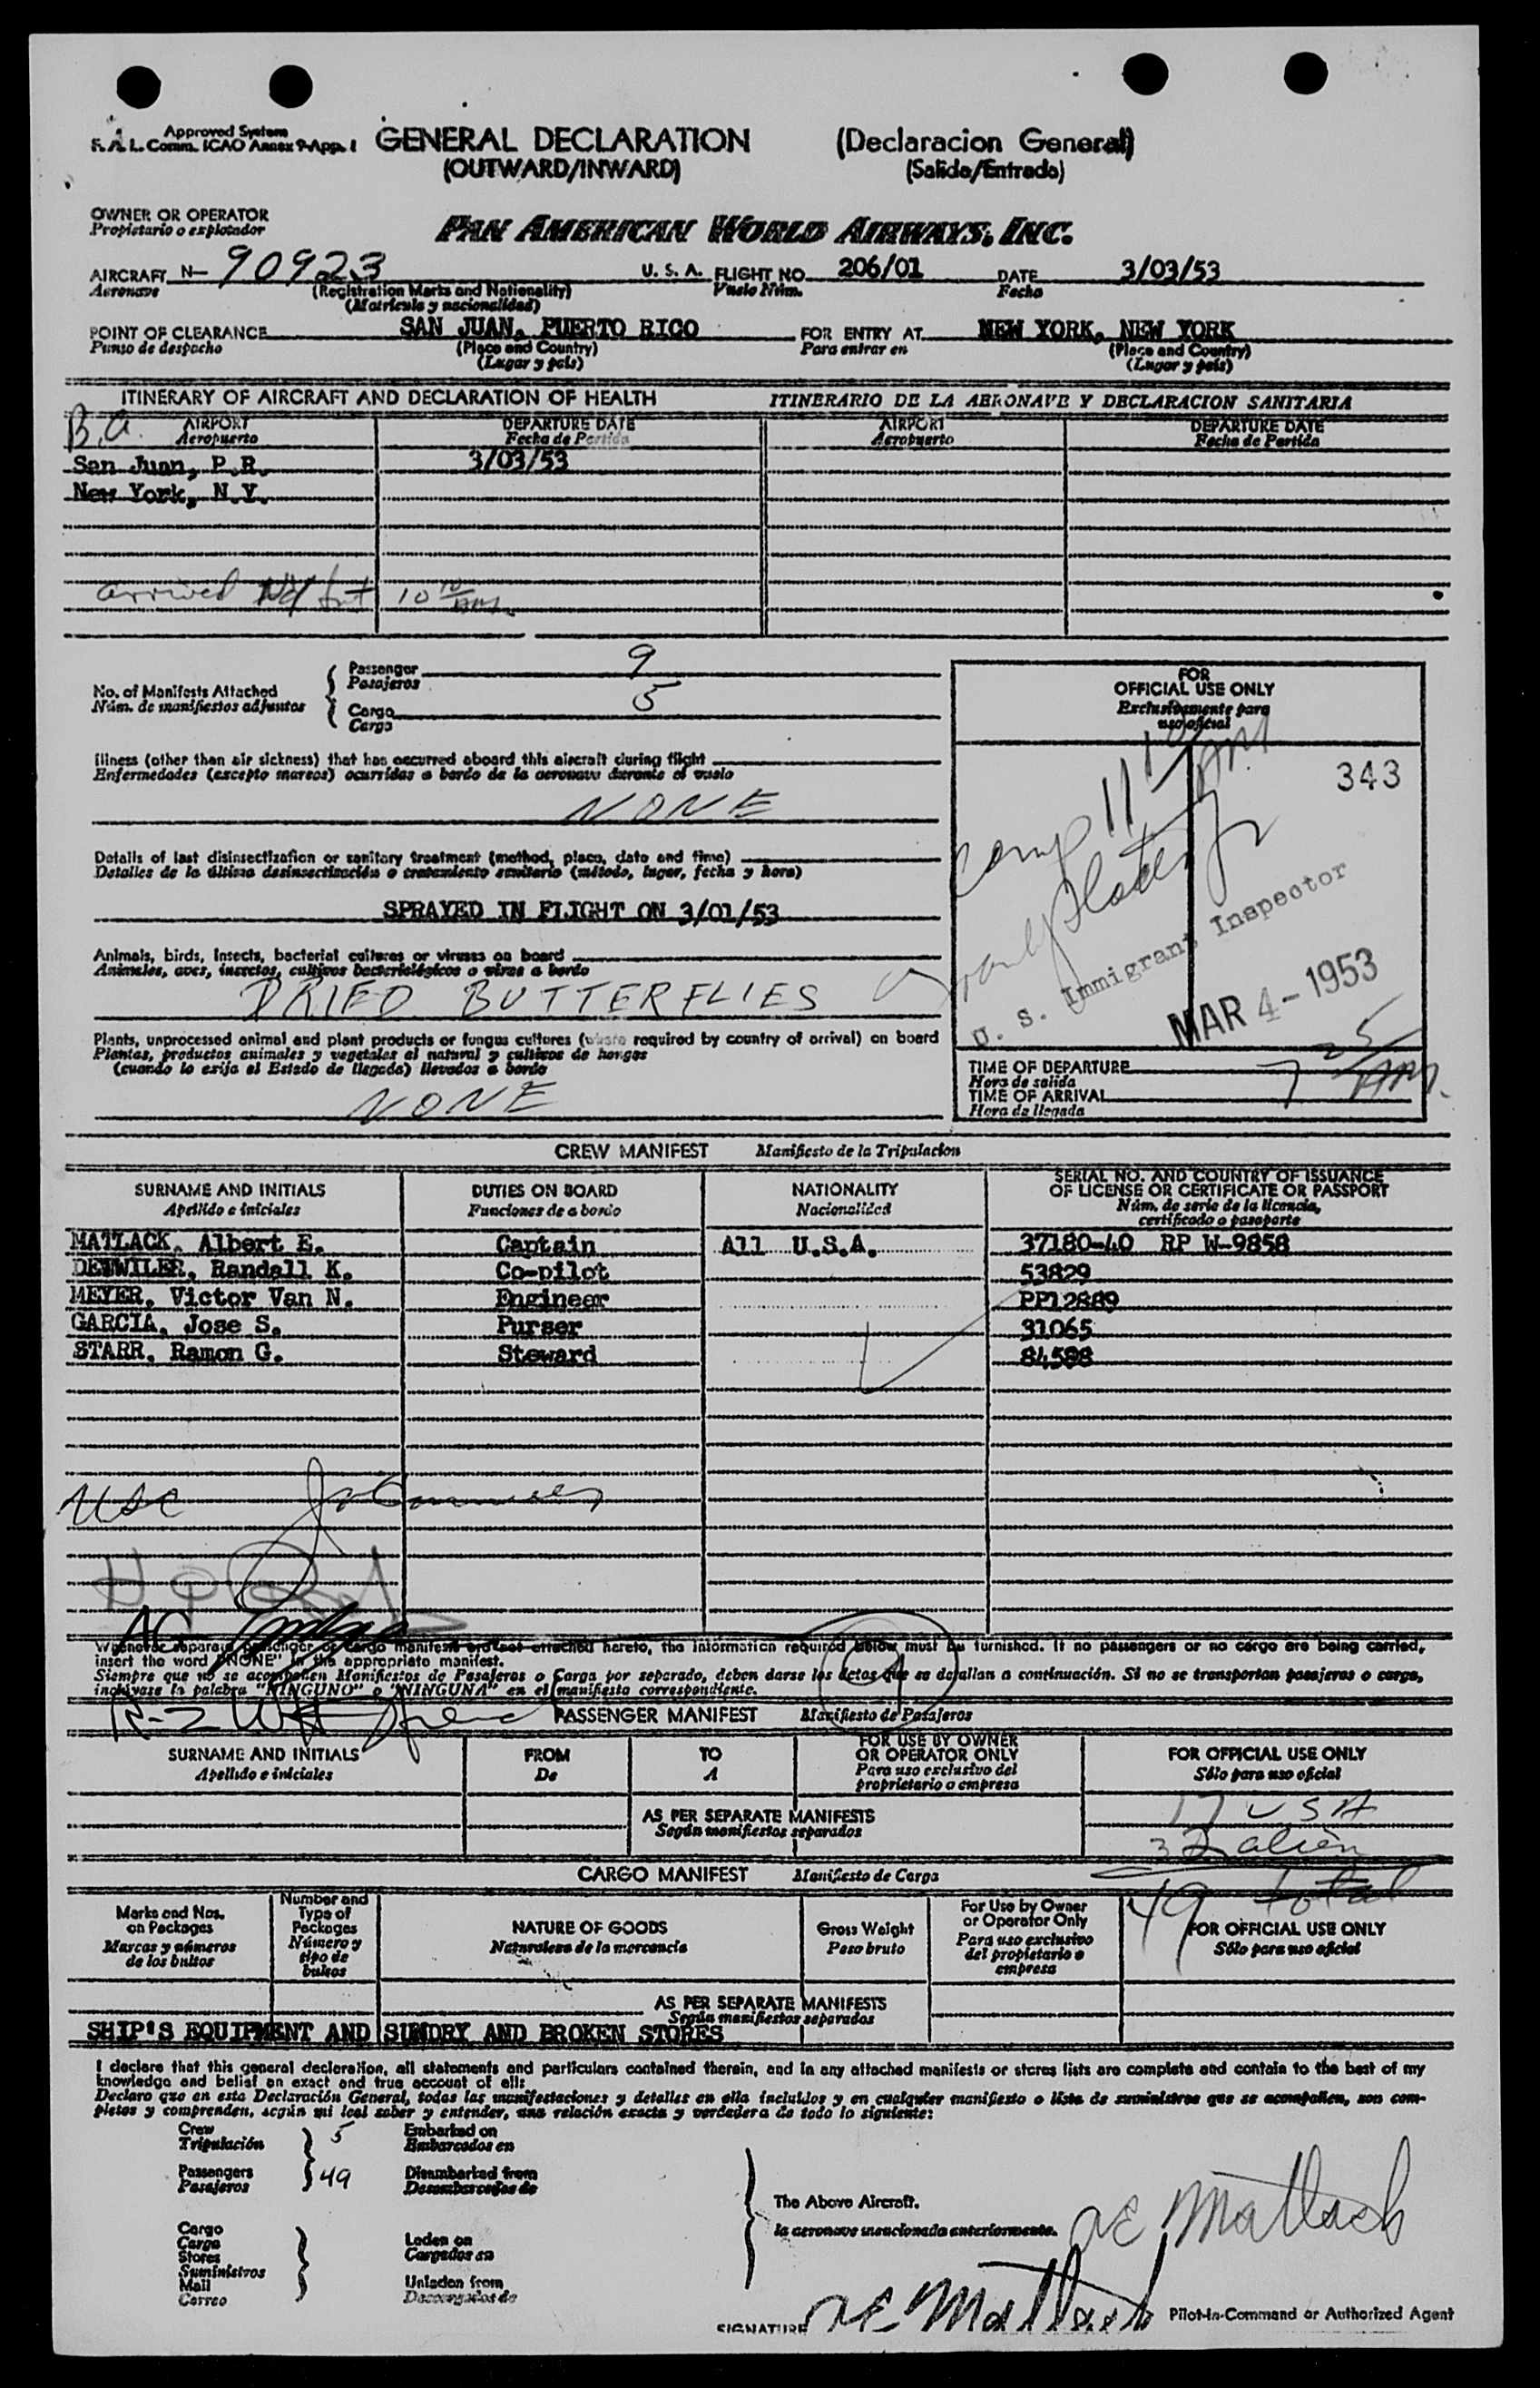 Approved System
F.A.L. Comm. ICAO Annex 9-App. 1
GENERAL DECLARATION (Declaracion General)
(OUTWARD/INWARD) (Salida/Entrada)
OWNER OR OPERATOR
Propietario o explotador
PAN AMERICAN WORLD AIRWAYS, INC.
AIRCRAFT N- 90923 U. S. A. FLIGHT NO. 206/01 DATE 3/03/53
Aeronave (Registration Marks and Nationality) Vuelo Núm. Fecha
(Matricula y nacionalidad)
POINT OF CLEARANCE SAN JUAN, PUERTO RICO FOR ENTRY AT NEW YORK, NEW YORK
Punto de despacho (Place and Country) Para entrar en (Place and Country)
(Lugar y país) (Lugar y país)
ITINERARY OF AIRCRAFT AND DECLARATION OF HEALTH ITINERARIO DE LA AERONAVE Y DECLARACION SANITARIA
B.A. AIRPORT DEPARTURE DATE AIRPORT DEPARTURE DATE
Aeropuerto Fecha de Partida Aeropuerto Fecha de Partida
San Juan, P.R. 3/03/53
New York, N.Y.
arrived 10 10 AM.
No. of Manifests Attached
Núm. de manifiestos adjuntos
Passenger 9
Pasajeros
Cargo 5
Cargo
FOR
OFFICIAL USE ONLY
Exclusivamente para
uso oficial
Illness (other than air sickness) that has occurred aboard this aircraft during flight
Enfermedades (excepto mareos) ocurridas a bordo de la aeronave durante el vuelo
NONE
343
Comp 11 10 AM
Details of last disinsectization or sanitary treatment (method, place, date and time)
Detalles de la última desinsectización o tratamiento sanitario (método, lugar, fecha y hora)
SPRAYED IN FLIGHT ON 3/01/53
U. S. Immigrant Inspector
MAR 4-1953
Animals, birds, insects, bacterial cultures or viruses on board
Animales, aves, insectos, cultivos bacteriológicos o virus a bordo
DRIED BUTTERFLIES
Plants, unprocessed animal and plant products or fungus cultures (where required by country of arrival) on board
Plantas, productos animales y vegetales al natural y cultivos de hongos
(cuando lo exija el Estado de llegada) llevados a bordo
NONE
TIME OF DEPARTURE
Hora de salida
TIME OF ARRIVAL 7 25 AM.
Hora de llegada
CREW MANIFEST Manifiesto de la Tripulacion
SURNAME AND INITIALS DUTIES ON BOARD NATIONALITY SERIAL NO. AND COUNTRY OF ISSUANCE
OF LICENSE OR CERTIFICATE OR PASSPORT
Apellido e iniciales Funciones de a bordo Nacionalidad Núm. de serie de la licencia,
certificado o pasaporte
MATLACK, Albert E. Captain All U.S.A. 37180-40 RP W-9858
DETWILER, Randall K. Co-pilot 53829
MEYER, Victor Van N. Engineer PP12889
GARCIA, Jose S. Purser 31065
STARR, Ramon G. Steward 84598
USC
Whenever separate passenger or cargo manifests are not attached hereto, the information required below must be furnished. If no passengers or no cargo are being carried,
insert the word "NONE" in the appropriate manifest.
Siempre que no se acompañen Manifiestos de Pasajeros o Carga por separado, deben darse los datos que se detallan a continuación. Si no se transportan pasajeros o carga,
inclúyase la palabra "NINGUNO" o "NINGUNA" en el manifiesto correspondiente.
9
PASSENGER MANIFEST Manifiesto de Pasajeros
SURNAME AND INITIALS FROM TO FOR USE BY OWNER
OR OPERATOR ONLY FOR OFFICIAL USE ONLY
Apellido e iniciales De A Para uso exclusivo del
propietario o empresa Sólo para uso oficial
AS PER SEPARATE MANIFESTS
Según manifiestos separados
17 USA
32 alien
49 total
CARGO MANIFEST Manifiesto de Carga
Marks and Nos.
on Packages
Marcas y números
de los bultos
Number and
Type of
Packages
Número y
tipo de
bultos
NATURE OF GOODS
Naturaleza de la mercancia
Gross Weight
Peso bruto
For Use by Owner
or Operator Only
Para uso exclusivo
del propietario o
empresa
FOR OFFICIAL USE ONLY
Sólo para uso oficial
AS PER SEPARATE MANIFESTS
Según manifiestos separados
SHIP'S EQUIPMENT AND SUNDRY AND BROKEN STORES
I declare that this general declaration, all statements and particulars contained therein, and in any attached manifests or stores lists are complete and contain to the best of my
knowledge and belief an exact and true account of all:
Declaro que en esta Declaración General, todas las manifestaciones y detalles en ella incluídos y en cualquier manifiesto o lista de suministros que se acompañen, son com-
pletos y comprenden, según mi leal saber y entender, una relación exacta y verdadera de todo lo siguiente:
Crew 5 Embarked on
Tripulación Embarcados en
Passengers 49 Disembarked from
Pasajeros Desembarcados de
The Above Aircraft.
la aeronave mencionada anteriormente.
AE Matlack
Cargo
Carga
Stores
Suministros
Mail
Correo
Laden on
Cargados en
Unladen from
Descargados de
SIGNATURE AE Matlack Pilot-in-Command or Authorized Agent